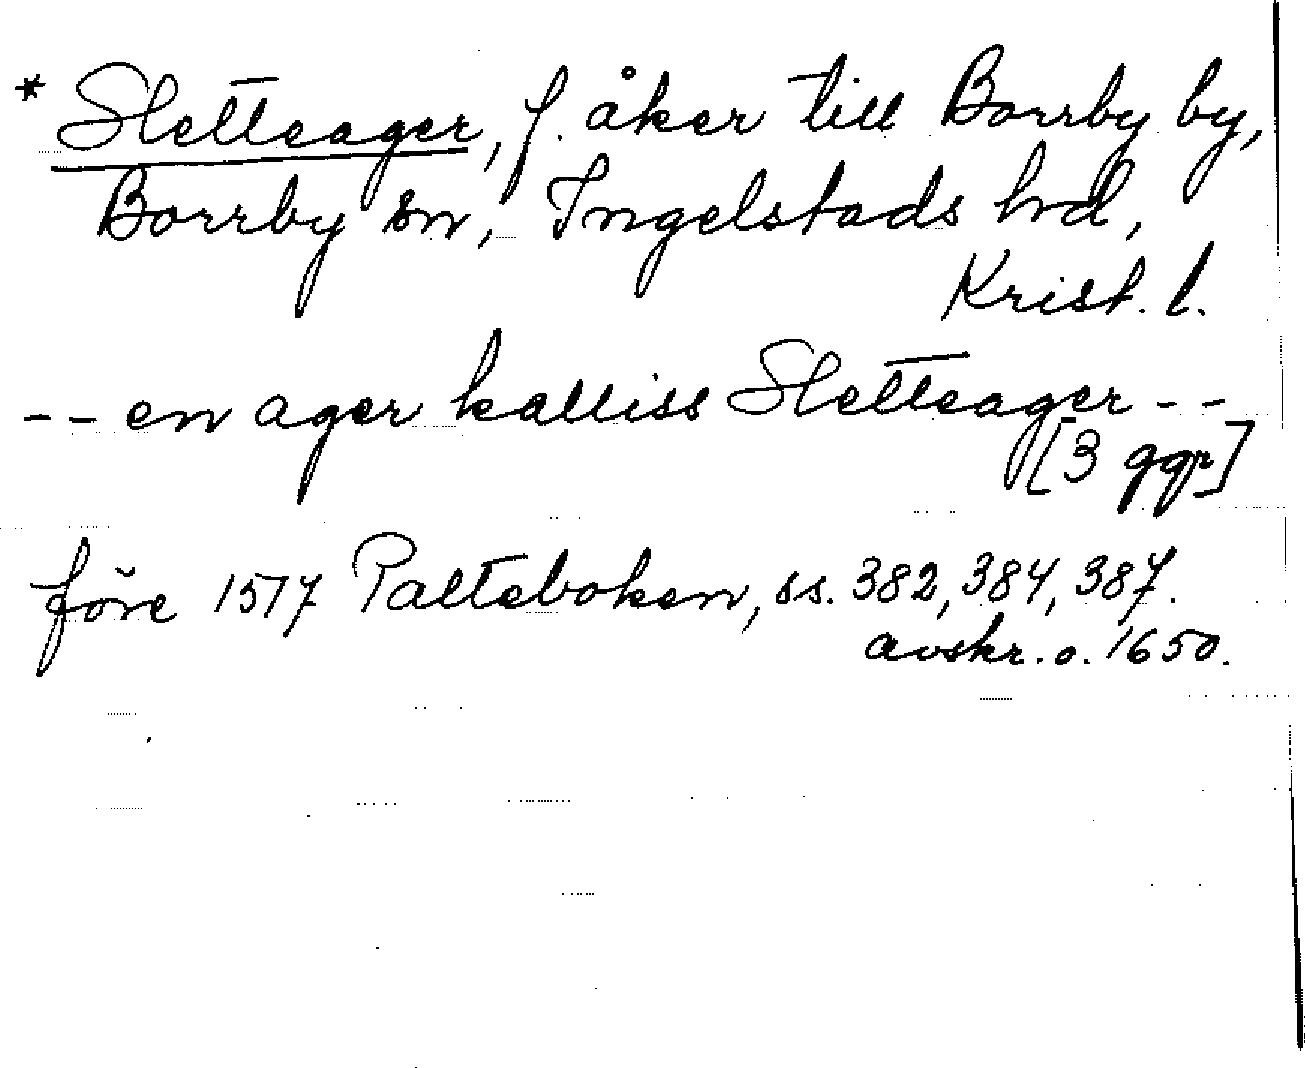 * Sletteager, f. åker till Borrby by,
Borrby sn, Ingelstads hd,
Krist. l.
-- en ager kalliss Sletteager --
[3 ggr]
före 1517 Palteboken, ss. 382, 384, 387.
avskr. o. 1650.